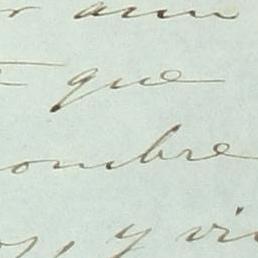 aun
que
ombre
y vi